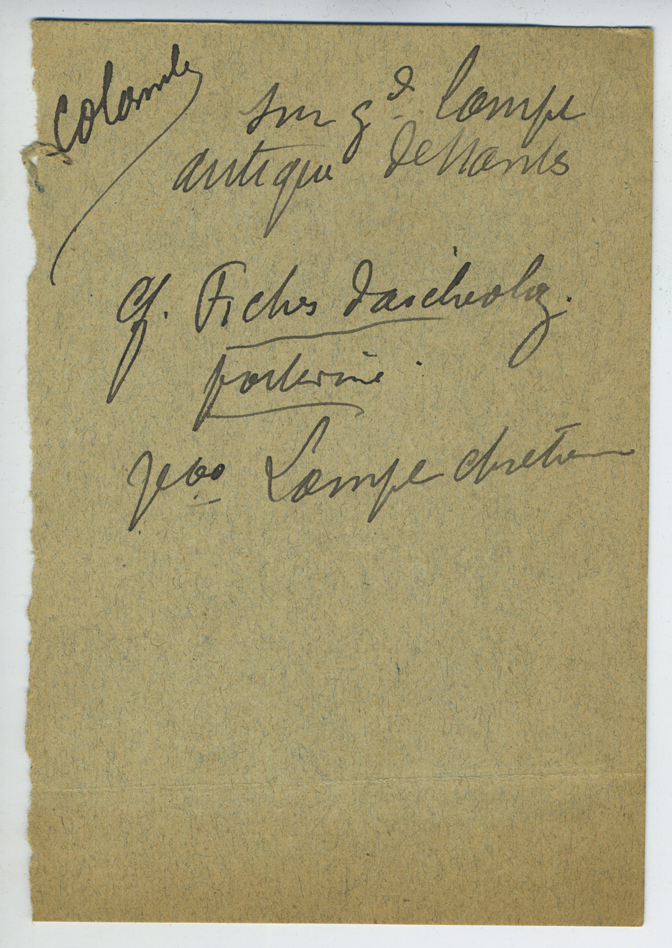 Colombe
sur gd. lampe
antique de Nantes
cf. Fiches d'archéolog.
poitevine.
Lampe chrétien